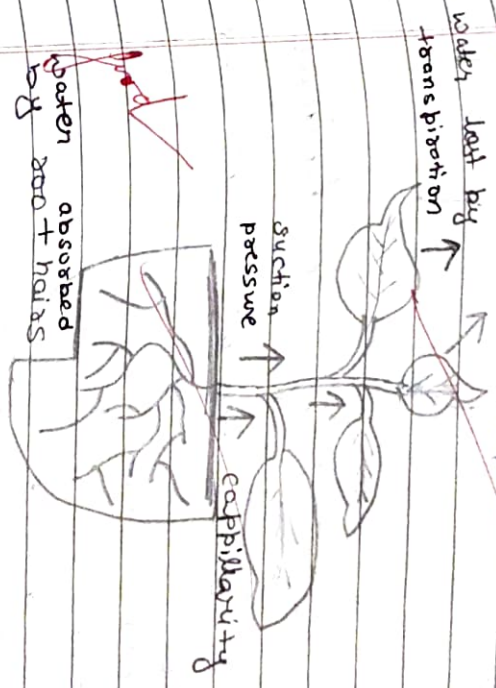 water lost by
transpiration
suction
pressure
cappillarity
water absorbed
by root hairs